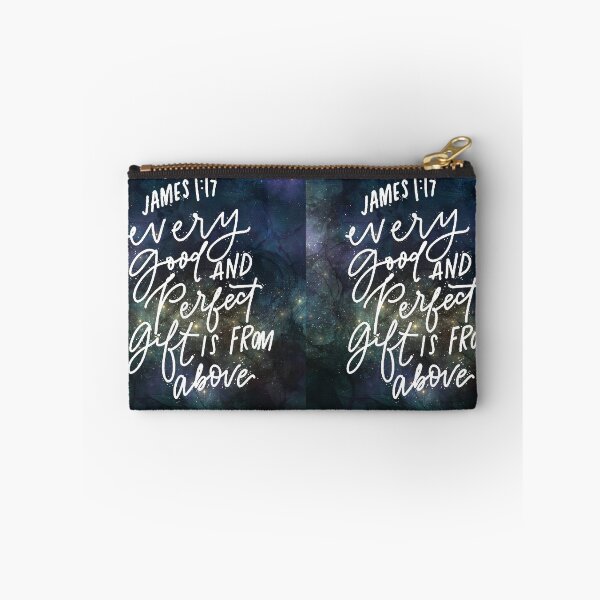 JAMES 1:17
every
good AND
Perfect
gift IS FROM
above
JAMES 1:17
every
good AND
Perfect
gift IS FRO
above